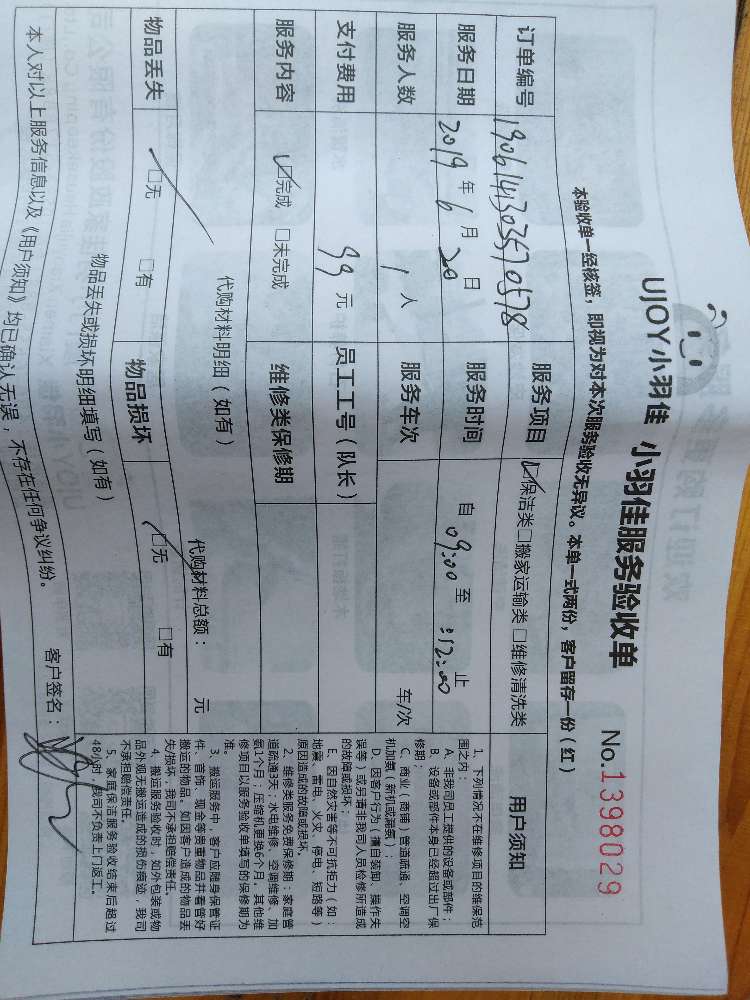 UJOY小羽佳 小羽佳服务验收单 No.1398029
本验收单一经核签，即视为对本次服务验收无异议。本单一式两份，客户留存一份（红）
订单编号 1906141303570578 服务项目 ☑保洁类□搬家运输类□维修清洗类
服务日期 2019年6月20日 服务时间 自09:00至12:00止
服务人数 1人 服务车次 车/次
支付费用 99元 员工工号（队长）
服务内容 ☑完成 □未完成 维修类保修期
代购材料明细（如有）
代购材料总额： 元
物品丢失 ☑无 □有 物品损坏 ☑无 □有
物品丢失或损坏明细填写（如有）
本人对以上服务信息以及《用户须知》均已确认无误，不存在任何争议纠纷。 客户签名：
用户须知
1、下列情况不在维修项目的维保范
围之内：
A、非我司员工提供的设备或部件；
B、设备或部件本身已经超过出厂保
修期；
C、商业（商铺）管道疏通、空调空
机加氨（新机或漏氨）；
D、因客户行为（擅自装卸、操作失
误等）或另请非我司人员检修所造成
的故障或损坏；
E、因自然灾害等不可抗拒力（如：
地震、雷电、火灾、停电、短路等）
原因造成的故障或损坏。
2、维修类服务免费保修期：家庭管
道疏通3天；水电维修、空调维修、加
氨1个月；压缩机更换6个月，其他维
修项目以服务验收单填写的保修期为
准。
3、搬运服务中，客户应随身保管证
件、首饰、现金等贵重物品并看管好
搬运的物品。如因客户造成的物品丢
失/损坏，我司不承担赔偿责任。
4、搬运服务验收时，如外包装或物
品外观无搬运造成的损伤痕迹，我司
不承担赔偿责任。
5、家庭保洁服务验收结束后超过
48小时，我司不负责上门返工。